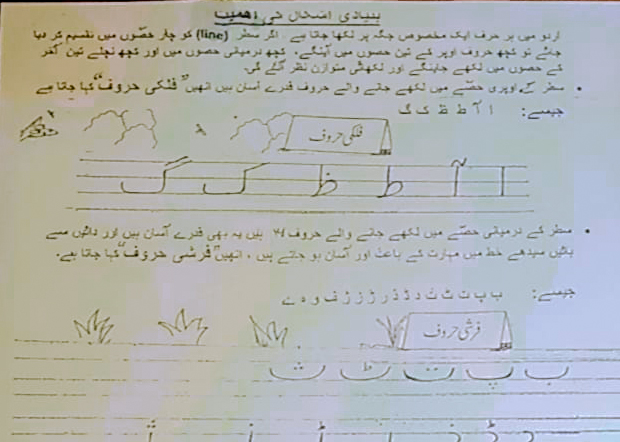 بنیادی اشکال کی اہمیت
اردو میں ہر حرف ایک مخصوص جگہ پر لکھا جاتا ہے۔ اگر سطر (line) کو چار حصّوں میں تقسیم کر دیا
جائے تو کچھ حروف اوپر کے تین حصوں میں آینگے۔ کچھ درمیانی حصوں میں اور کچھ نچلے تین آخر
کے حصوں میں لکھے جاینگے اور لکھائی متوازن نظر آئے گی۔
• سطر کے اوپری حصّے میں لکھے جانے والے حروف قدرے آسان ہیں انھیں "فلکی حروف" کہا جاتا ہے
جیسے: ا آ ط ظ ک گ
فلکی حروف
ا آ ط ظ ک گ
• سطر کے درمیانی حصّے میں لکھے جانے والے حروف ہیں یہ بھی قدرے آسان ہیں اور دائیں سے
بائیں سیدھے خط میں مہارت کے باعث اور آسان ہو جاتے ہیں ، انہیں "فرشی حروف" کہا جاتا ہے۔
جیسے: ب پ ت ٹ ث د ڈ ذ ر ڑ ز ژ ف و ہ ے
فرشی حروف
ب پ ت ٹ ث